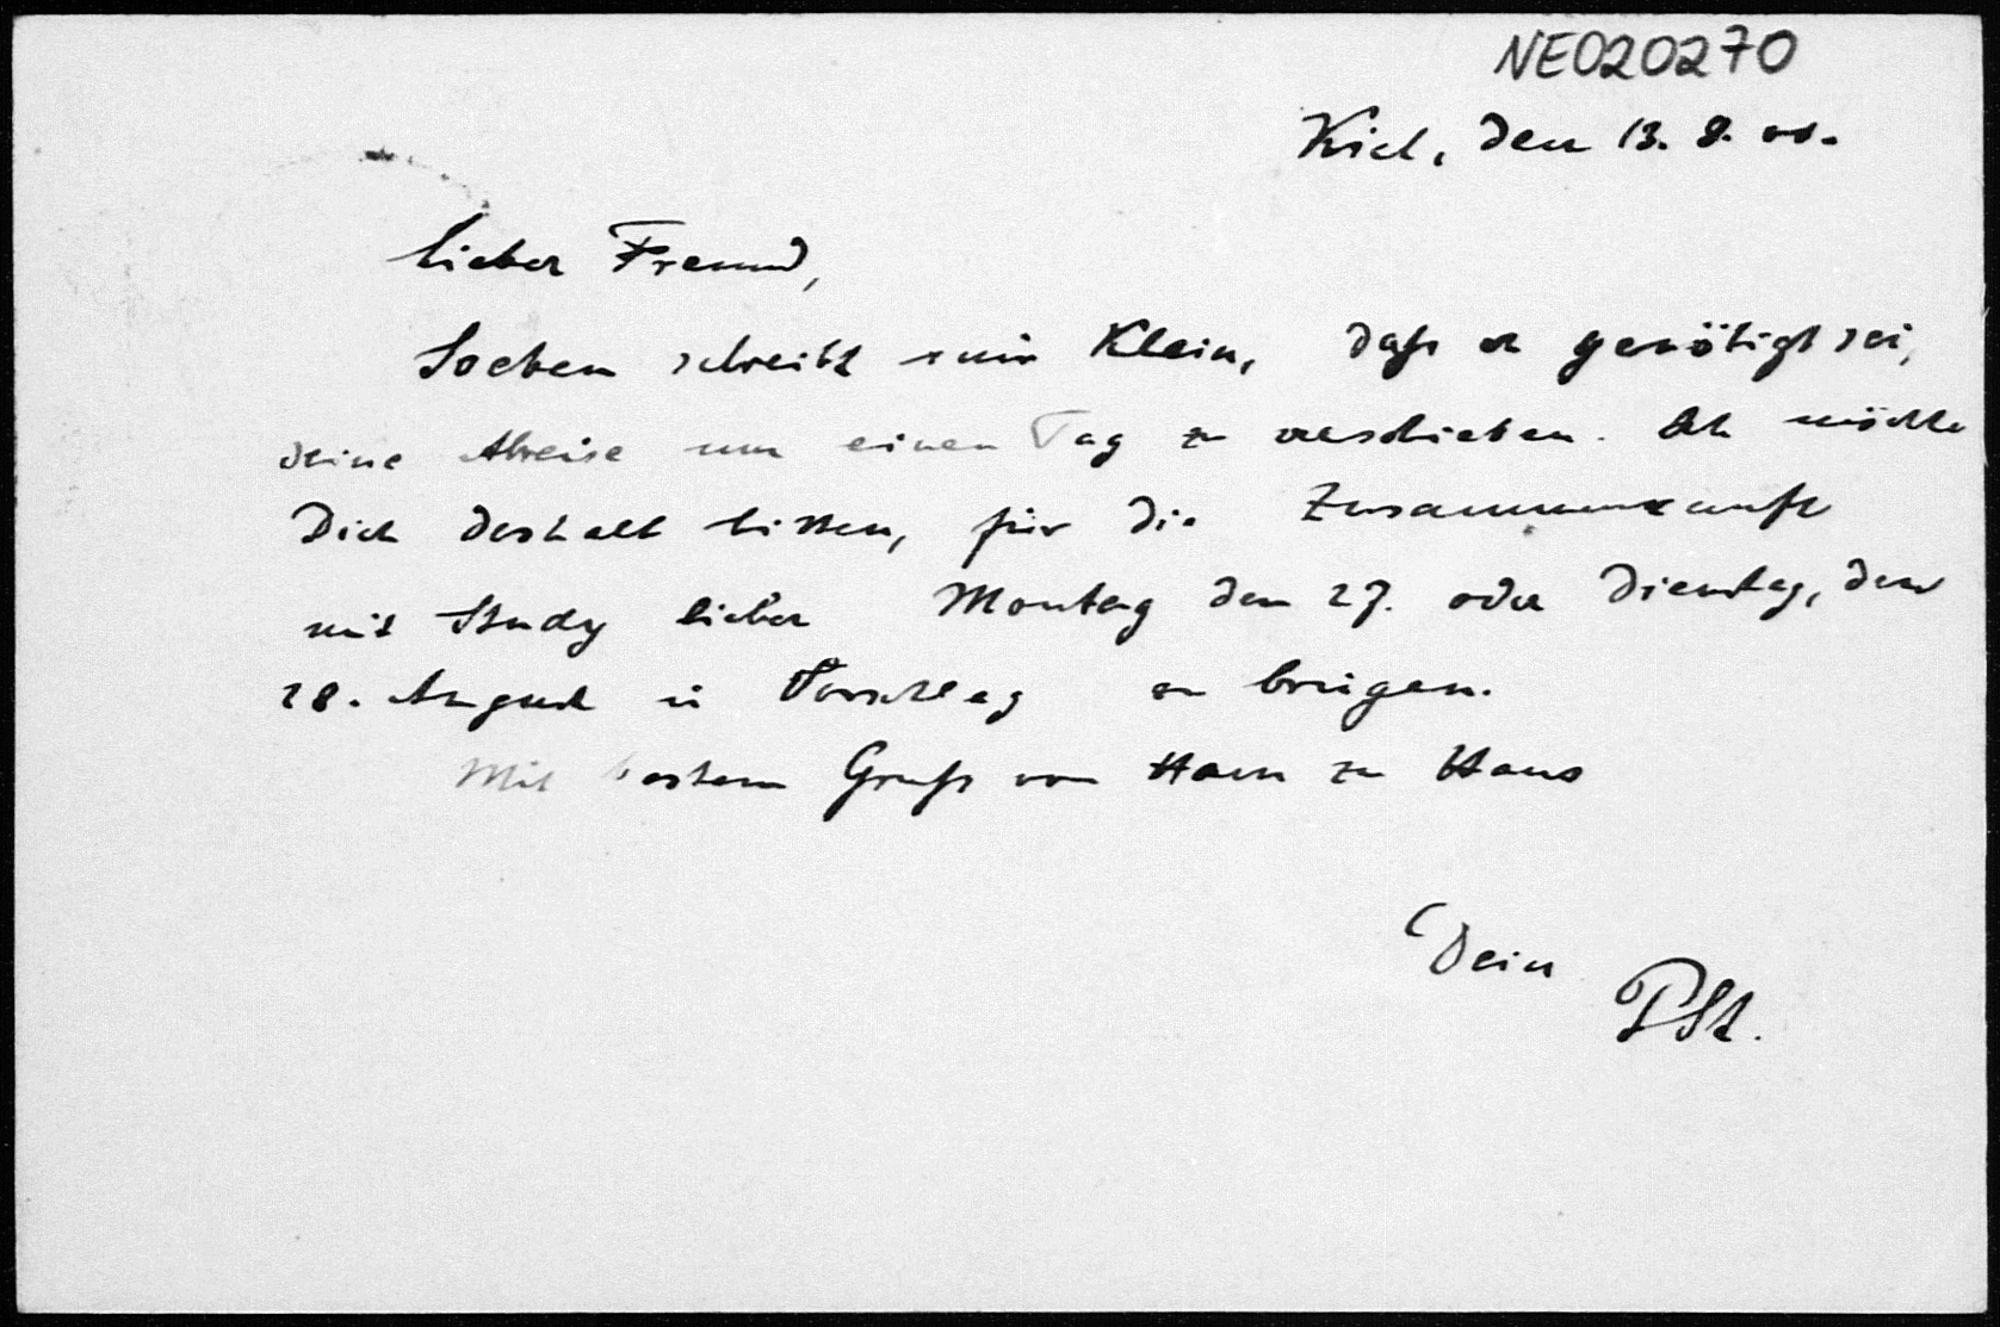 NE020270
Kiel, den 13. 8. 00.
Lieber Freund,
Soeben schreibt mir Klein, daß er genötigt sei,
seine Abreise um einen Tag zu verschieben. Ich möchte
Dich deshalb bitten, für die Zusammenkunft
mit Study lieber Montag den 27. oder Dienstag, den
28. August in Vorschlag zu bringen.
Mit bestem Gruß von Haus zu Haus
Dein
PSt.